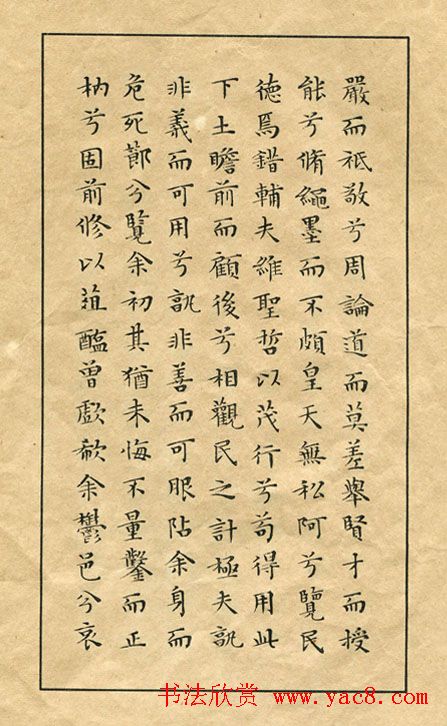 嚴而祗敬兮周論道而莫差舉賢才而授
能兮脩繩墨而不頗皇天無私阿兮覽民
德焉錯輔夫維聖哲以茂行兮苟得用此
下土瞻前而顧後兮相觀民之計極夫孰
非義而可用兮孰非善而可服阽余身而
危死節兮覽余初其猶未悔不量鑿而正
枘兮固前修以菹醢曾歔欷余鬱邑兮哀
书法欣赏 www.yac8.com